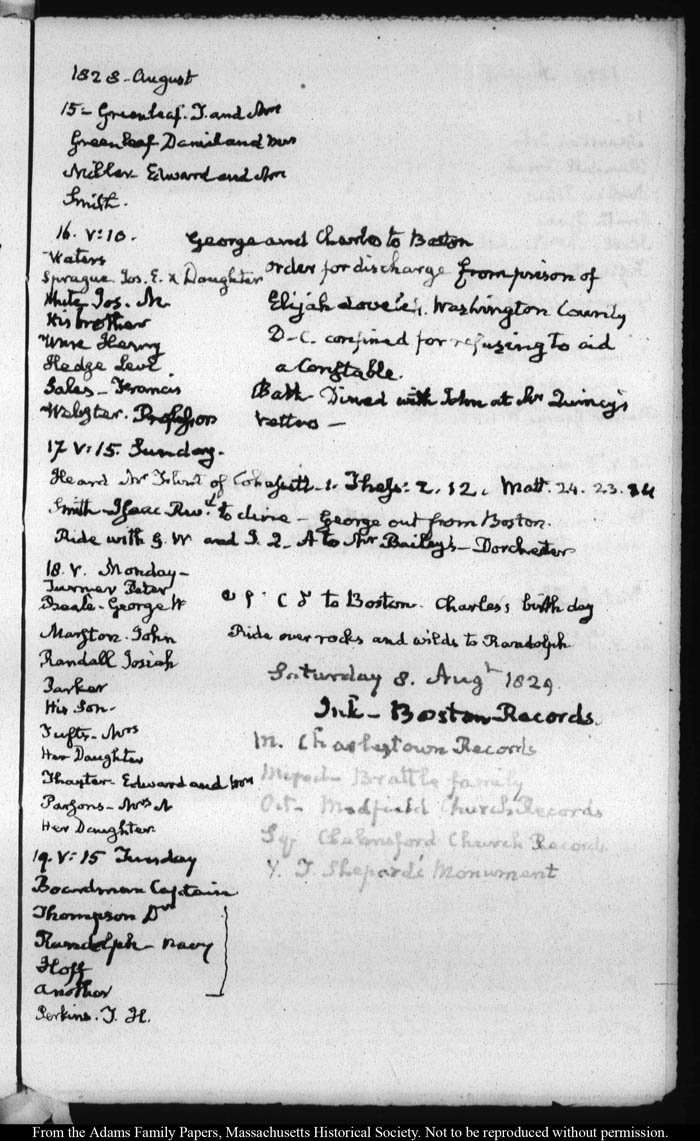 1828 - August
15 - Greenleaf. T. and Mrs
Greenleaf Daniel and Mrs
Miller Edward and Mrs
Smith.
16. V:10. George and Charles to Boston
Waters
Sprague Jos. E. & Daughter order for discharge from prison of
White Jos. M. Elijah Washington County
His brother
Ware Henry D-C. confined for refusing to aid
Hedge Levi. a Constable.
Sales - Francis Bath - Dined with John at Mr Quincy's
Webster. Professor
17 V:15. Sunday.
Heard Mr Flint of Cohassett 1. Thess: 2. 12. Matt. 24. 23.
Smith - Isaac Revd to dine - George out from Boston.
Ride with G. W and J. Q. A to Mr Bailey's - Dorchester
18. V. Monday -
Turner Peter
Beale - George W to Boston. Charles's birth day
Marston. John Ride over rocks and wilds to Randolph
Randall Josiah
Saturday 8. Augt 1829.
Parker
His Son - Ink - Boston Records.
Tufts - Mrs
M. Charlestown Records
Her Daughter
Thayter - Edward and Brattle family
Parsons - Mrs Oct - Medfield Church Records
Her Daughter. Chelmsford Church Records
19. V:15 Tuesday V. T Shepard's Monument
Boardman Captain
Thompson Dr
Randolph - navy
Hoff
Another
Perkins. T. H.
From the Adams Family Papers, Massachusetts Historical Society. Not to be reproduced without permission.